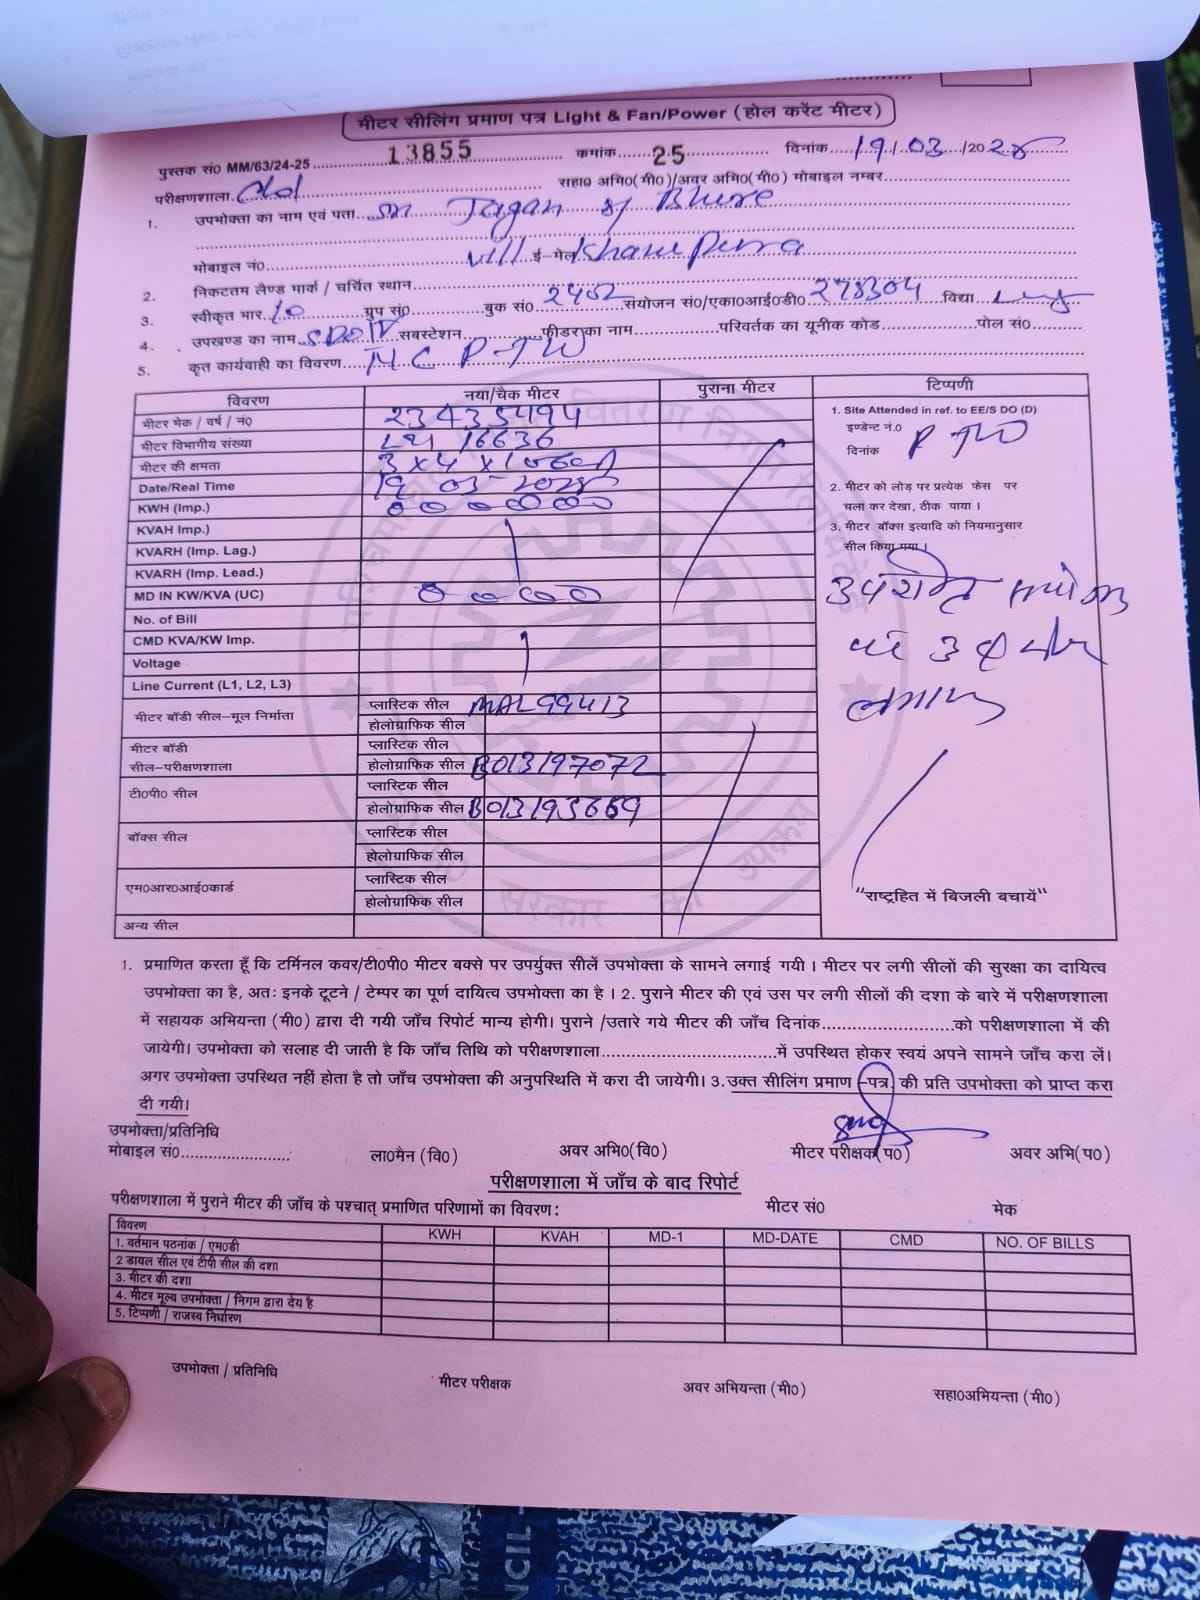 मीटर सीलिंग प्रमाण पत्र Light & Fan/Power (होल करेंट मीटर)
पुस्तक सं0 MM/63/24-25 13855 कमांक 25 दिनांक 19/03/20
परीक्षणशाला सहा0 अभि0(मी0)/अवर अभि0(मी0) मोबाइल नम्बर
1. उपभोक्ता का नाम एवं पता Jagan Bhure
मोबाइल नं0 vill ई-मेल
2. निकटतम लैण्ड मार्क / चर्चित स्थान
3. स्वीकृत भार ग्रुप सं0 बुक सं0 संयोजन सं0/एका0आई0डी0 278304 विद्या
4. उपखण्ड का नाम SDO IV सबस्टेशन फीडर का नाम परिवर्तक का यूनीक कोड पोल सं0
5. कृत कार्यवाही का विवरण
विवरण नया/चैक मीटर पुराना मीटर टिप्पणी
मीटर मेक / वर्ष / नं0 23435494
मीटर विभागीय संख्या 16636
मीटर की क्षमता
Date/Real Time 19 03
KWH (Imp.)
KVAH Imp.)
KVARH (Imp. Lag.)
KVARH (Imp. Lead.)
MD IN KW/KVA (UC)
No. of Bill
CMD KVA/KW Imp.
Voltage
Line Current (L1, L2, L3)
मीटर बॉडी सील–मूल निर्माता प्लास्टिक सील MAL 99413
होलोग्राफिक सील
मीटर बॉडी सील–परीक्षणशाला प्लास्टिक सील
होलोग्राफिक सील B013197072
टी0पी0 सील प्लास्टिक सील
होलोग्राफिक सील B013193669
बॉक्स सील प्लास्टिक सील
होलोग्राफिक सील
एम0आर0आई0कार्ड प्लास्टिक सील
होलोग्राफिक सील
अन्य सील
1. Site Attended in ref. to EE/S DO (D)
इण्डेन्ट नं.0
दिनांक
2. मीटर को लोड़ पर प्रत्येक फेस पर
चला कर देखा, ठीक पाया ।
3. मीटर बॉक्स इत्यादि को नियमानुसार
सील किया गया ।
"राष्ट्रहित में बिजली बचायें"
1. प्रमाणित करता हूँ कि टर्मिनल कवर/टी0पी0 मीटर बक्से पर उपर्युक्त सीलें उपभोक्ता के सामने लगाई गयी । मीटर पर लगी सीलों की सुरक्षा का दायित्व
उपभोक्ता का है, अतः इनके टूटने / टेम्पर का पूर्ण दायित्व उपभोक्ता का है । 2. पुराने मीटर की एवं उस पर लगी सीलों की दशा के बारे में परीक्षणशाला
में सहायक अभियन्ता (मी0) द्वारा दी गयी जाँच रिपोर्ट मान्य होगी। पुराने /उतारे गये मीटर की जाँच दिनांक को परीक्षणशाला में की
जायेगी। उपभोक्ता को सलाह दी जाती है कि जाँच तिथि को परीक्षणशाला में उपस्थित होकर स्वयं अपने सामने जाँच करा लें।
अगर उपभोक्ता उपस्थित नहीं होता है तो जाँच उपभोक्ता की अनुपस्थिति में करा दी जायेगी। 3. उक्त सीलिंग प्रमाण –पत्र की प्रति उपभोक्ता को प्राप्त करा
दी गयी।
उपभोक्ता/प्रतिनिधि
मोबाइल सं0 ला0मैन (वि0) अवर अभि0(वि0) मीटर परीक्षक(प0) अवर अभि(प0)
परीक्षणशाला में जाँच के बाद रिपोर्ट
परीक्षणशाला में पुराने मीटर की जाँच के पश्चात् प्रमाणित परिणामों का विवरण : मीटर सं0 मेक
विवरण KWH KVAH MD-1 MD-DATE CMD NO. OF BILLS
1. वर्तमान पठनांक / एम0डी
2 डायल सील एवं टीपी सील की दशा
3. मीटर की दशा
4. मीटर मूल्य उपभोक्ता / निगम द्वारा देय है
5. टिप्पणी / राजस्व निर्धारण
उपभोक्ता / प्रतिनिधि मीटर परीक्षक अवर अभियन्ता (मी0) सहा0अभियन्ता (मी0)